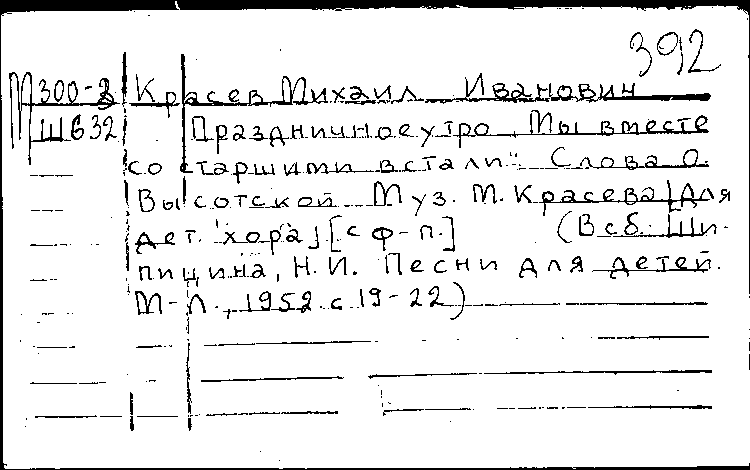 392
М300-3 Красев Михаил Иванович
Ш632 Праздничное утро „Мы вместе
со старшими встали". Слова О.
Высотской Муз. М. Красева [Для
дет. хора] [с ф-п.] (В сб. Ши-
пицина, Н.И. Песни для детей.
М-Л., 1952 с 19-22)